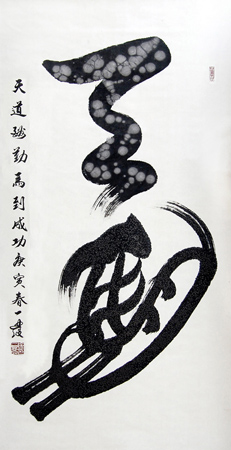 天馬
天道酬勤馬到成功庚寅春一